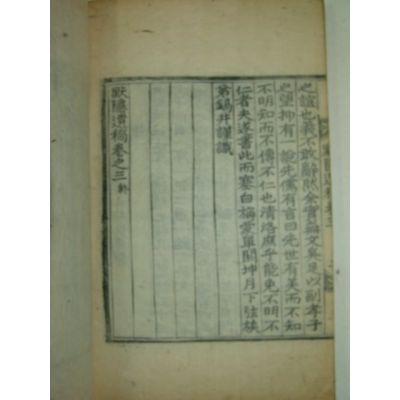 之誼也義不敢辭然余實無文奚足以副孝子
之望抑有一說先儒有言曰先世有美而不知
不明知而不傳不仁也清洛庶乎能免不明不
仁者夫遂書此而塞白梅愛單閼坤月下弦族
弟錫井謹識
遺稿卷之三終